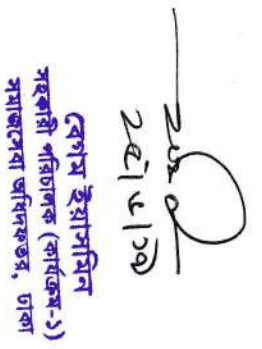 বেগম ইয়াসমিন
সহকারী পরিচালক (কার্যক্রম-১)
সমাজসেবা অধিদফতর, ঢাকা